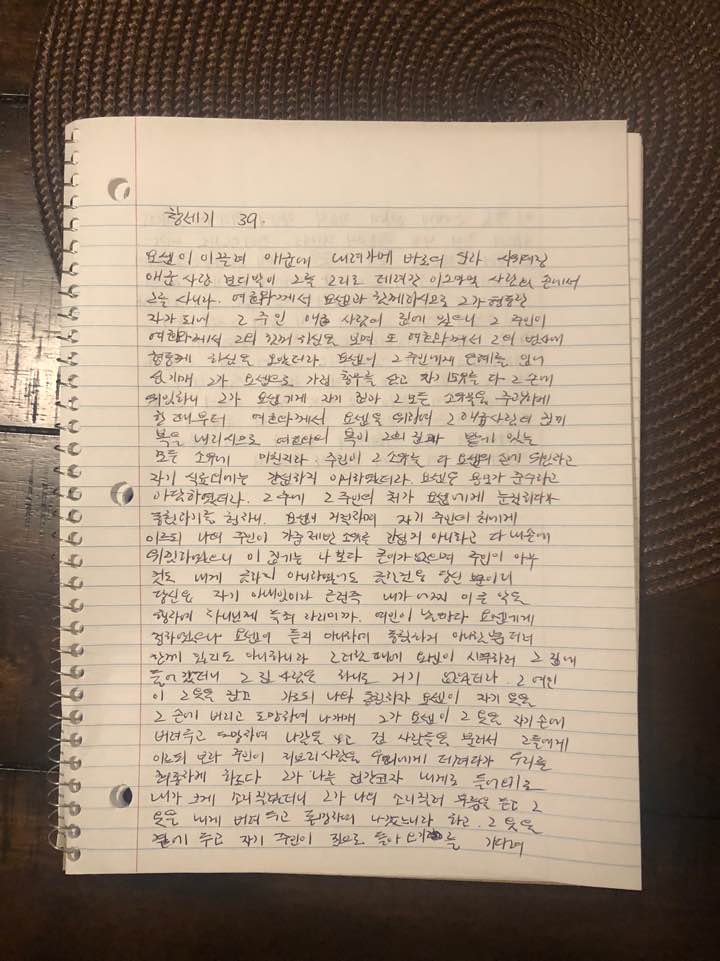 창세기 39.
요셉이 이끌려 애굽에 내려가매 바로의 신하 시위대장
애굽 사람 보디발이 그를 그리로 데려간 이스마엘 사람의 손에서
그를 사니라. 여호와께서 요셉과 함께 하시므로 그가 형통한
자가 되어 그 주인 애굽 사람의 집에 있으니 그 주인이
여호와께서 그와 함께 하심을 보며 또 여호와께서 그의 범사에
형통케 하심을 보았더라. 요셉이 그 주인에게 은혜를 입어
섬기매 그가 요셉으로 가정 총무를 삼고 자기 소유를 다 그 손에
위임하니 그가 요셉에게 자기 집과 그 모든 소유물을 주관하게
할 때부터 여호와께서 요셉을 위하여 그 애굽 사람의 집에
복을 내리시므로 여호와의 복이 그의 집과 밭에 있는
모든 소유에 미친지라. 주인이 그 소유를 다 요셉의 손에 위임하고
자기 식료 외에는 간섭하지 아니하였더라. 요셉은 용모가 준수하고
아담하였더라. 그 후에 그 주인의 처가 요셉에게 눈짓하다가
동침하기를 청하니. 요셉이 거절하며 자기 주인의 처에게
이르되 나의 주인이 가중 제반 소유를 간섭지 아니하고 다 내 손에
위임하였으니 이 집에는 나보다 큰 이가 없으며 주인이 아무
것도 내게 금하지 아니하였어도 금한 것은 당신 뿐이니
당신은 자기 아내임이라 그런즉 내가 어찌 이 큰 악을
행하여 하나님께 득죄 하리이까. 여인이 날마다 요셉에게
청하였으나 요셉이 듣지 아니하여 동침하지 아니할 뿐더러
함께 있지도 아니하니라 그러할 때에 요셉이 시무하러 그 집에
들어 갔더니 그 집 사람은 하나도 거기 없었더라. 그 여인
이 그 옷을 잡고 가로되 나와 동침하자 요셉이 자기 옷을
그 손에 버리고 도망하여 나가매 그가 요셉이 그 옷을 자기 손에
버려두고 도망하여 나감을 보고 집 사람들을 불러서 그들에게
이르되 보라 주인이 히브리 사람을 우리에게 데려다가 우리를
희롱하게 하도다 그가 나를 겁간코자 내게로 들어오기로
내가 크게 소리 질렀더니 그가 나의 소리 질러 부름을 듣고 그
옷을 내게 버려 두고 도망하여 나갔느니라 하고. 그 옷을
곁에 두고 자기 주인이 집으로 돌아 오기를 기다려